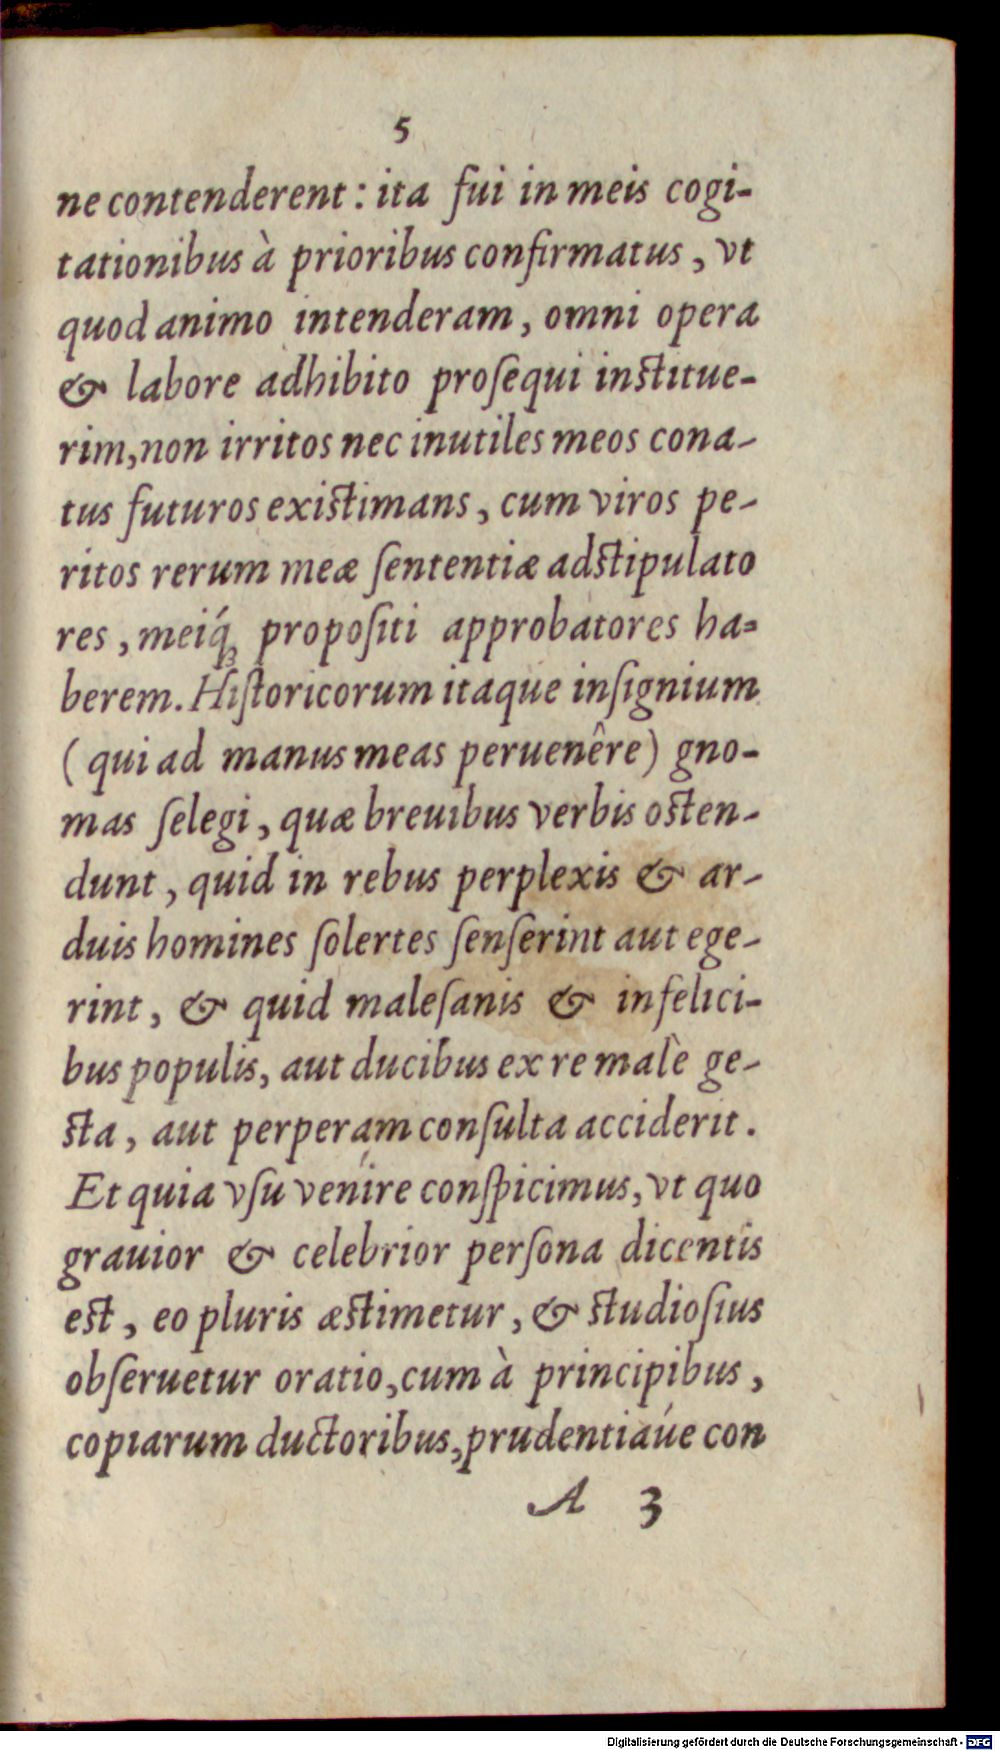 5
ne contenderent: ita fui in meis cogi-
tationibus à prioribus confirmatus, vt
quod animo intenderam, omni opera
& labore adhibito proſequi inſtitue-
rim, non irritos nec inutiles meos cona-
tus futuros exiſtimans, cum viros pe-
ritos rerum meæ ſententiæ adſtipulato
res, meiq́; propoſiti approbatores ha-
berem. Hiſtoricorum itaque inſignium
(qui ad manus meas peruenêre) gno-
mas ſelegi, quæ breuibus verbis oſten-
dunt, quid in rebus perplexis & ar-
duis homines ſolertes ſenſerint aut ege-
rint, & quid maleſanis & infelici-
bus populis, aut ducibus ex re malè ge-
ſta, aut perperam conſulta acciderit.
Et quia vſu venire conſpicimus, vt quo
grauior & celebrior perſona dicentis
eſt, eo pluris æſtimetur, & ſtudioſius
obſeruetur oratio, cum à principibus,
copiarum ductoribus, prudentiáue con
A 3
Digitalisierung gefördert durch die Deutsche Forschungsgemeinschaft - DFG